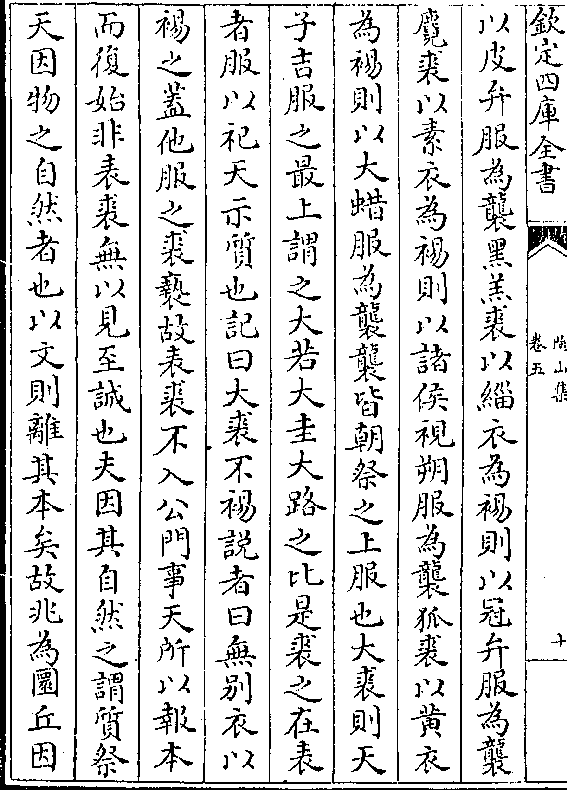 欽定四庫全書
陶山集
卷五
十
以皮弁服為襲黑羔裘以緇衣為裼則以冠弁服為襲
麑裘以素衣為裼則以諸侯視朔服為襲狐裘以黄衣
為裼則以大蜡服為襲襲皆朝祭之上服也大裘則天
子吉服之最上謂之大若大圭大路之比是裘之在表
者服以祀天示質也記曰大裘不裼説者曰無别衣以
裼之蓋他服之裘褻故表裘不入公門事天所以報本
而復始非表裘無以見至誠也夫因其自然之謂質祭
天因物之自然者也以文則離其本矣故兆為圜丘因